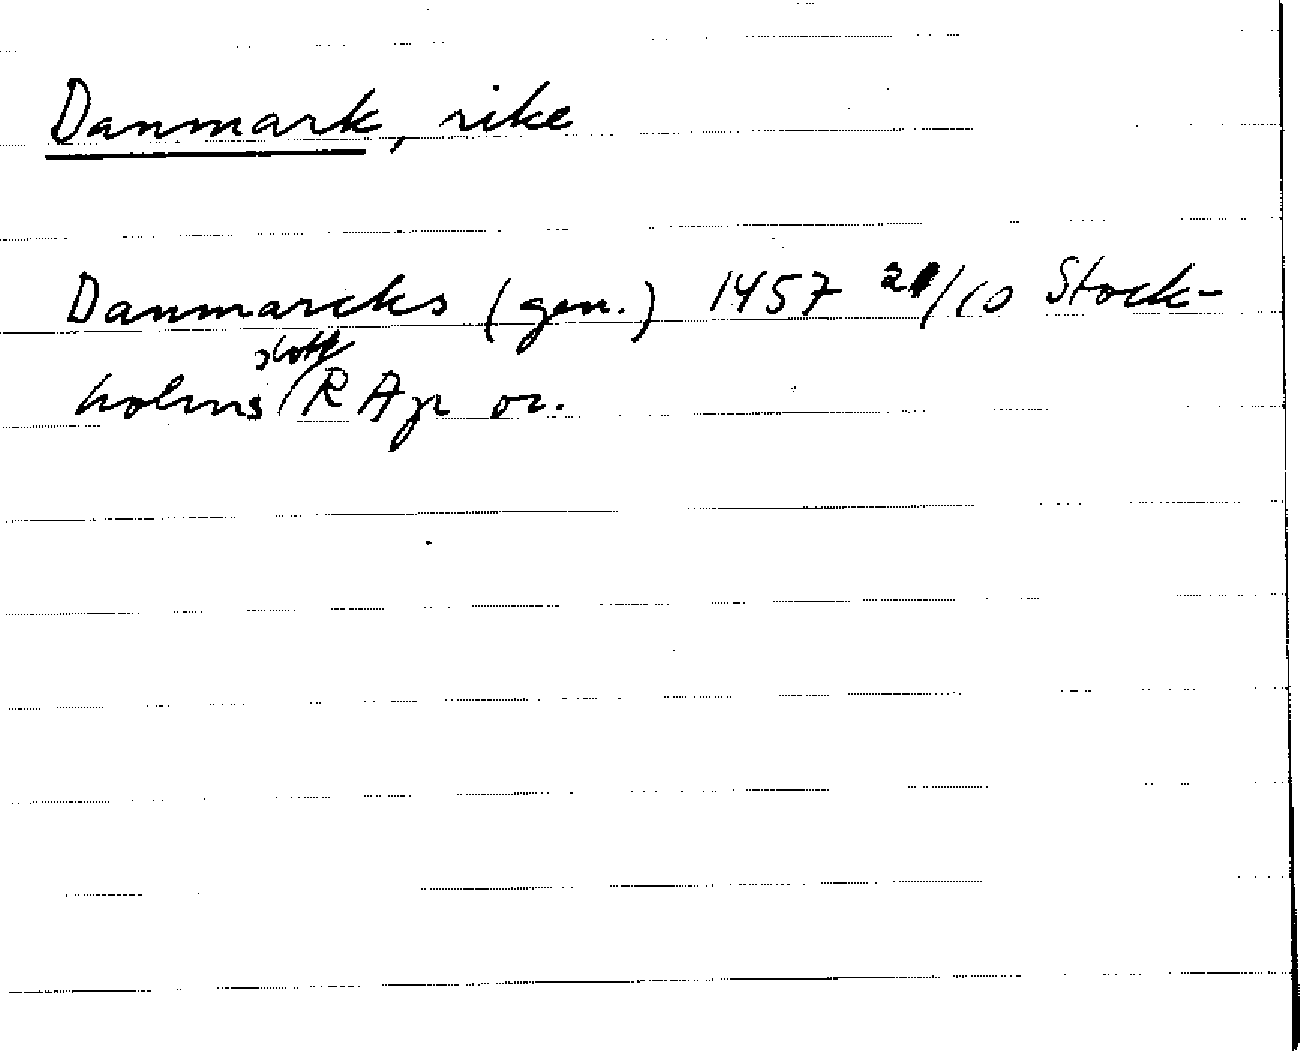 Danmark, rike
Danmarcks (gen.) 1457 21/10 Stock-
slott
holms RAp or.